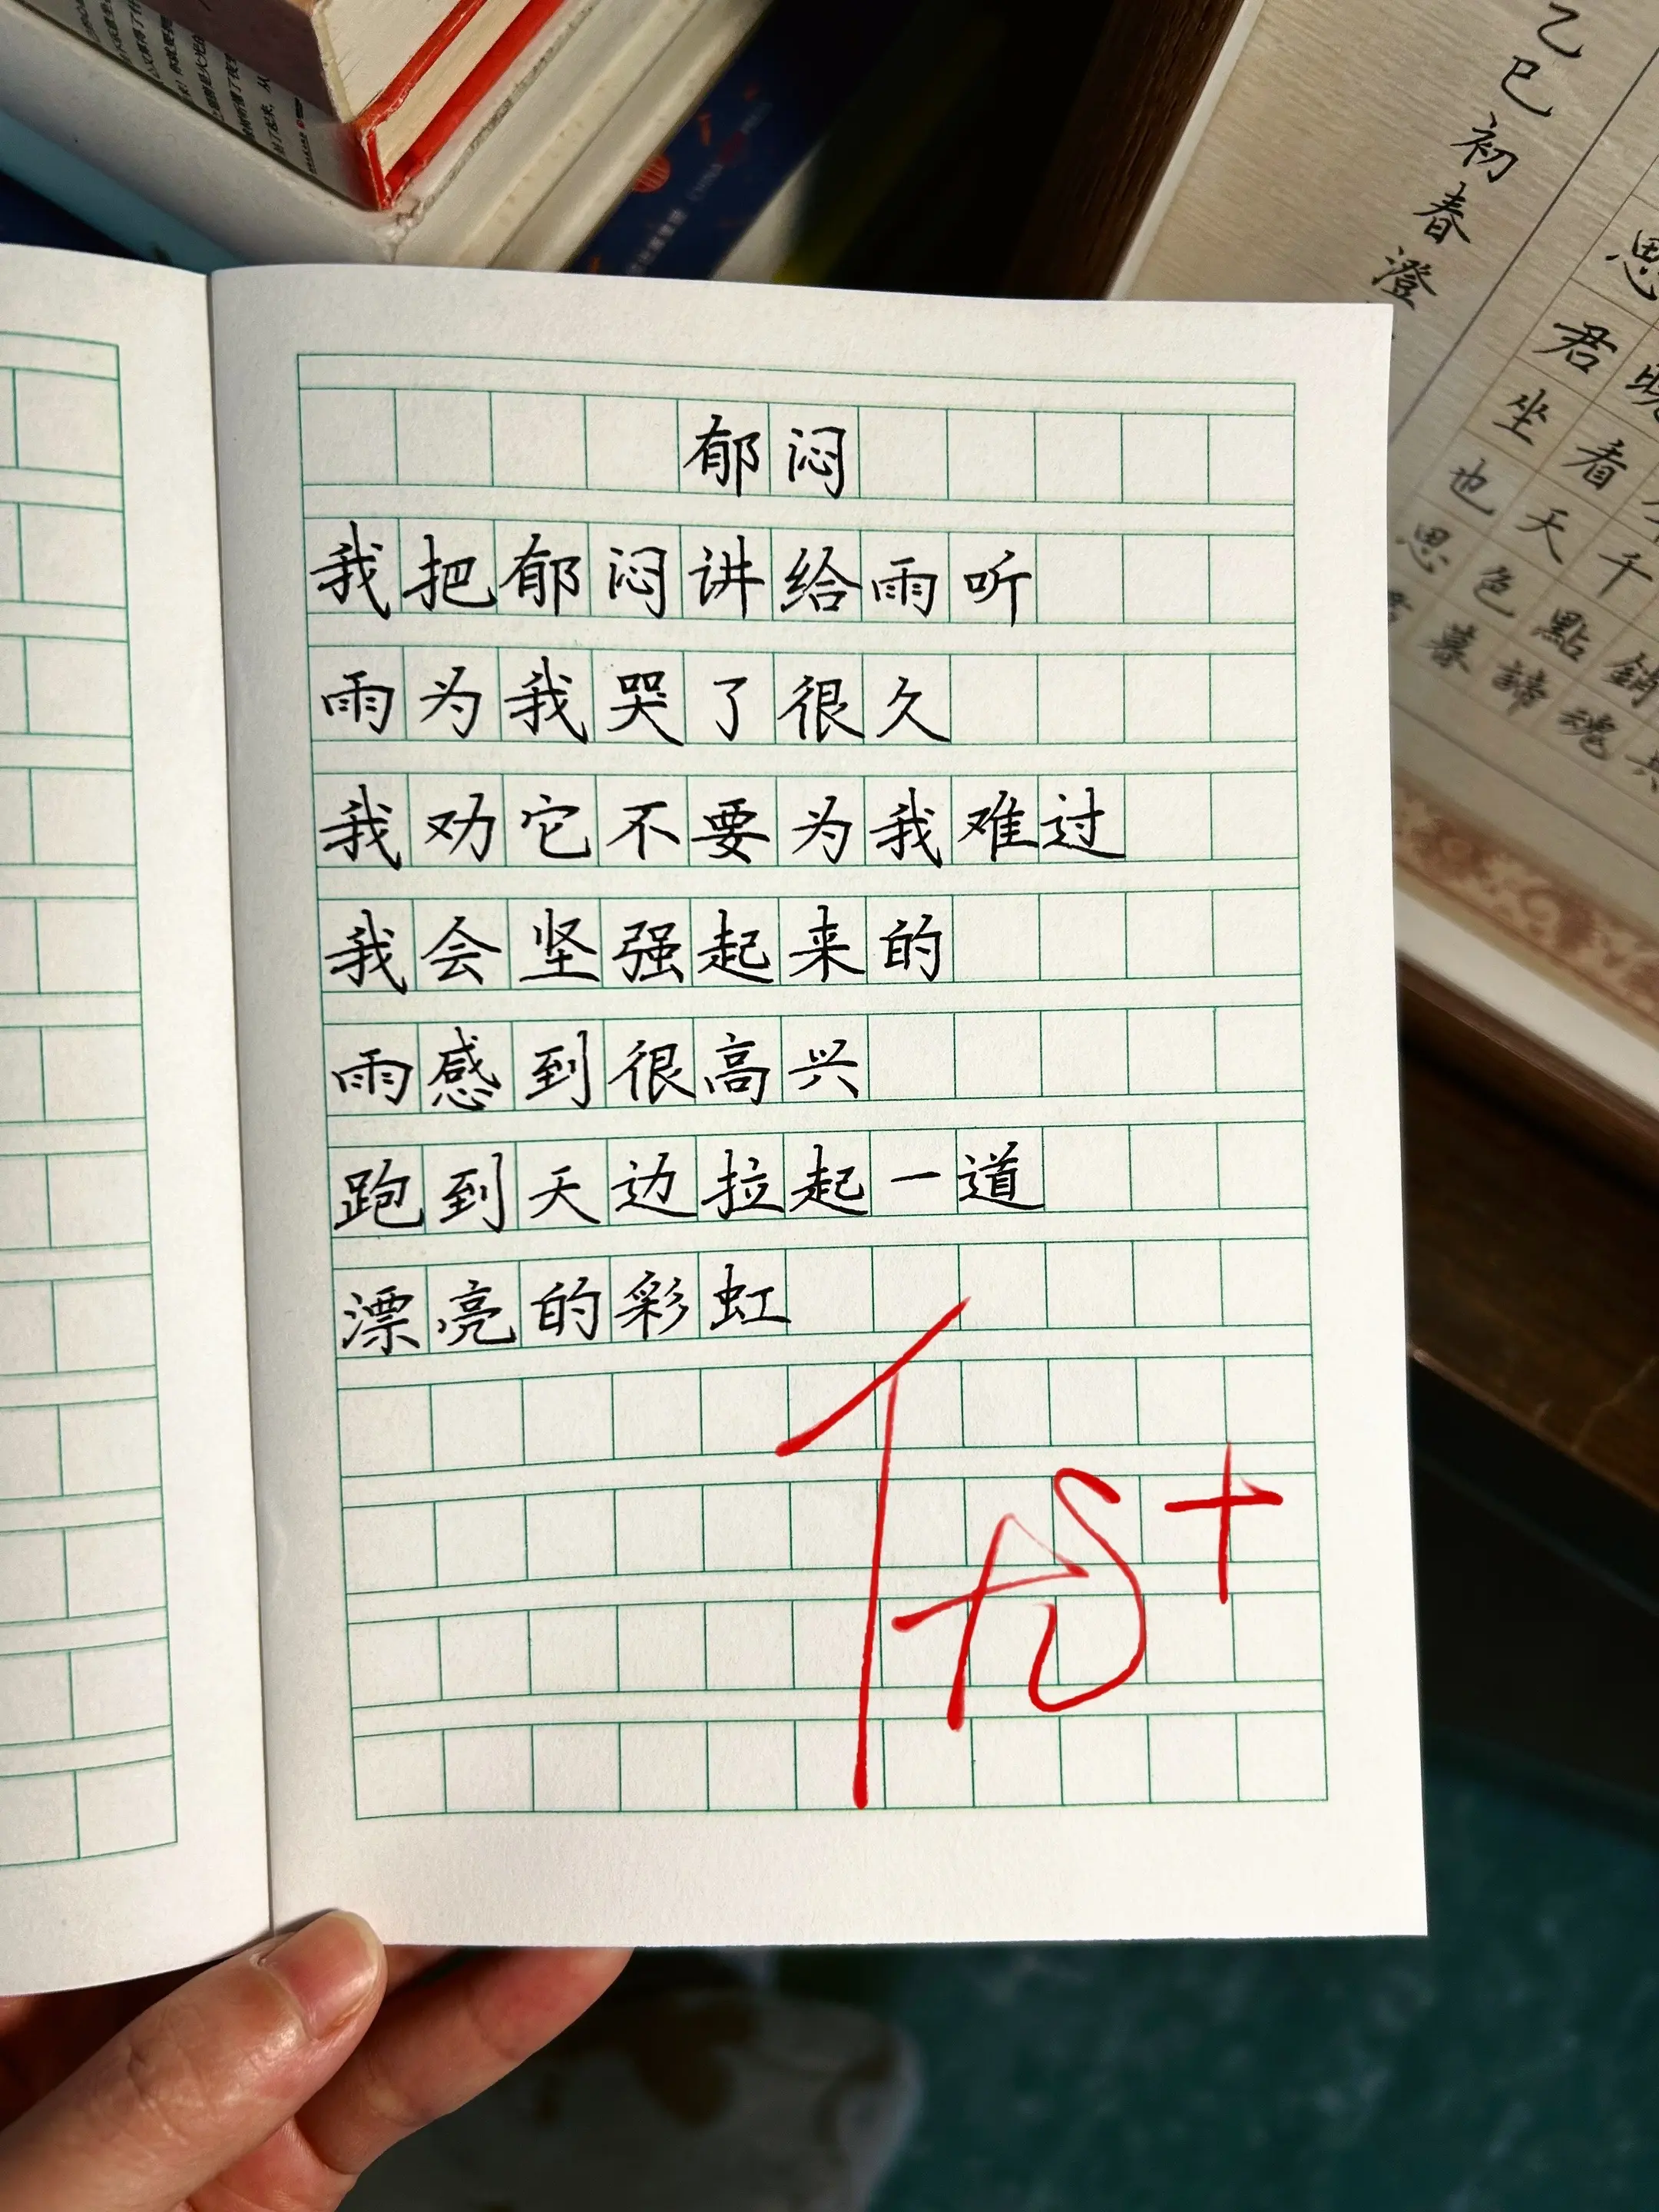 郁闷
我把郁闷讲给雨听
雨为我哭了很久
我劝它不要为我难过
我会坚强起来的
雨感到很高兴
跑到天边拉起一道
漂亮的彩虹
乙巳初春澄
思
君
坐看
也天千
思色點銷
暮諦魂